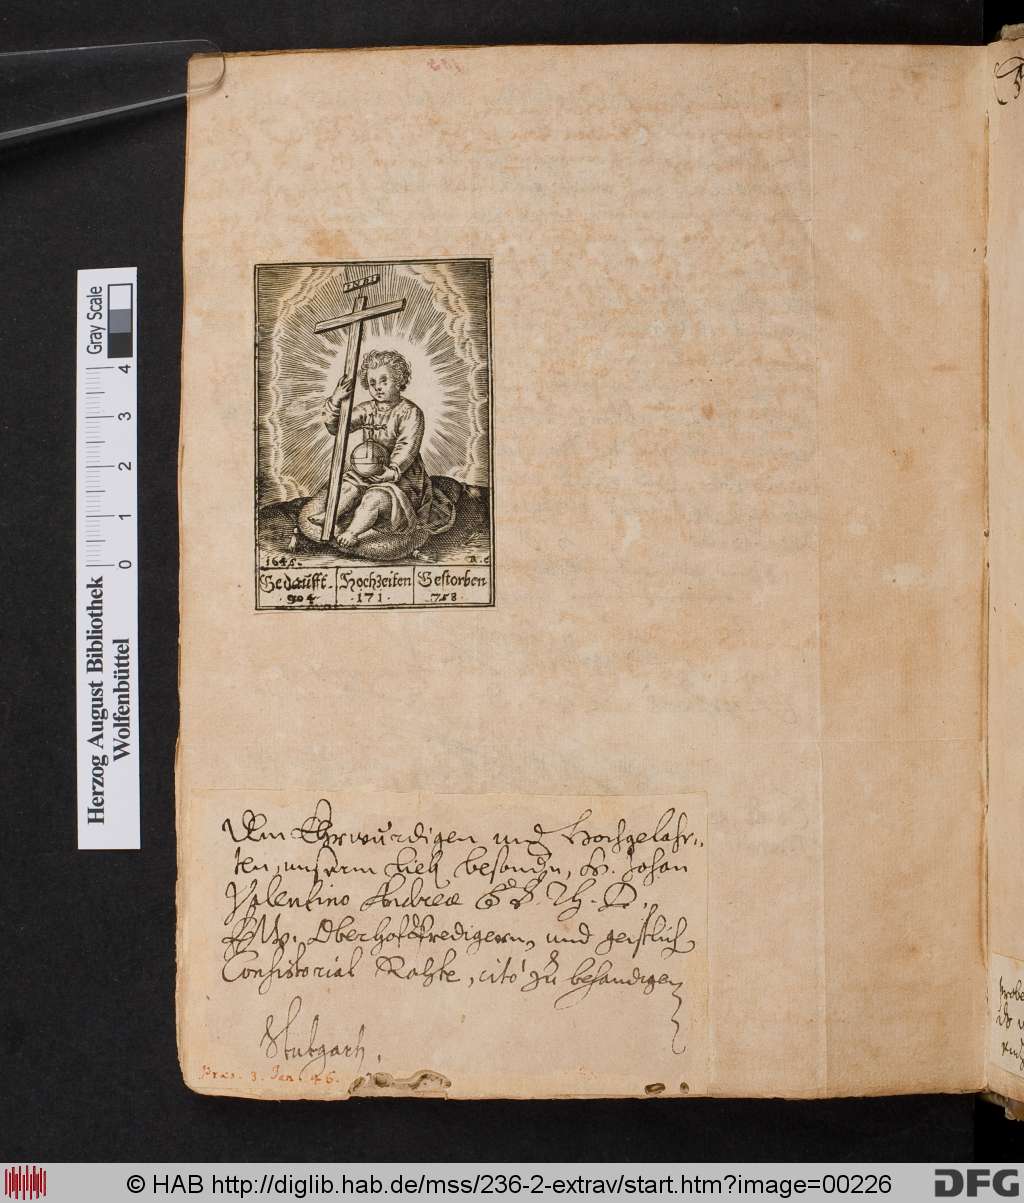 INRI
1645.
Getaufft. Hochzeiten Gestorben
904 · 171 · 758 ·
Dem Ehrwürdigen und Hochgelahr-
ten, unserm lieb besondn, H. Johan
Valentino Andreæ Th. D.
Oberhoffpredigern, und geistlich
Consistorial Rahte, citò zu behandigen
Stutgart.
Præs. 3. Jan. 46.
Herzog August Bibliothek
Wolfenbüttel
0 1 2 3 4
Gray Scale
© HAB http://diglib.hab.de/mss/236-2-extrav/start.htm?image=00226
DFG